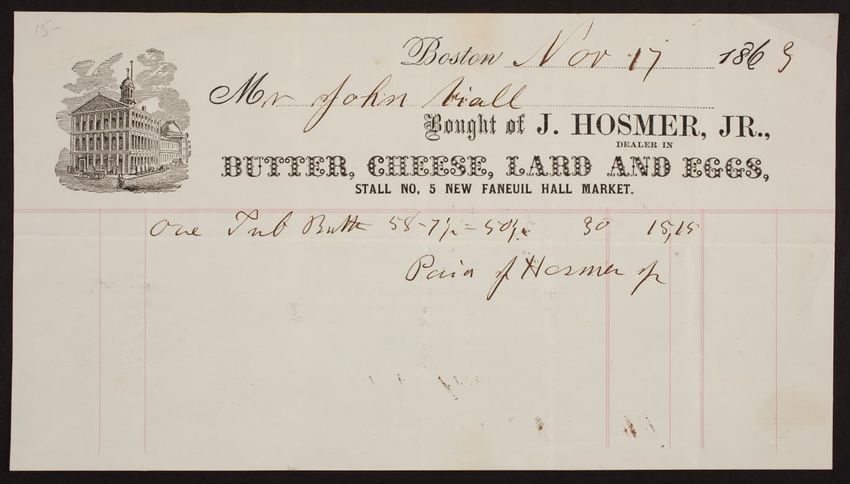 15-
Boston Nov 17 1863
Mr John Viall
Bought of J. HOSMER, JR.,
DEALER IN
BUTTER, CHEESE, LARD AND EGGS,
STALL NO. 5 NEW FANEUIL HALL MARKET.
One Tub Butter 58-7½=50½ 30 15,15
Paid J Hosmer Jr